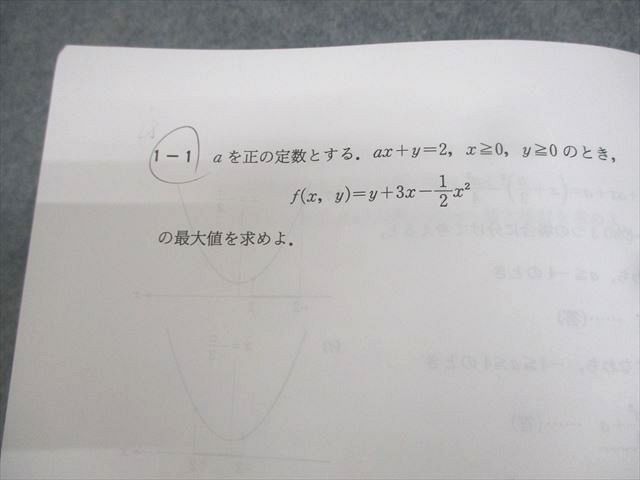 1－1 aを正の定数とする．ax＋y＝2，x≧0，y≧0のとき，
f(x, y)＝y＋3x－\frac{1}{2}x²
の最大値を求めよ．